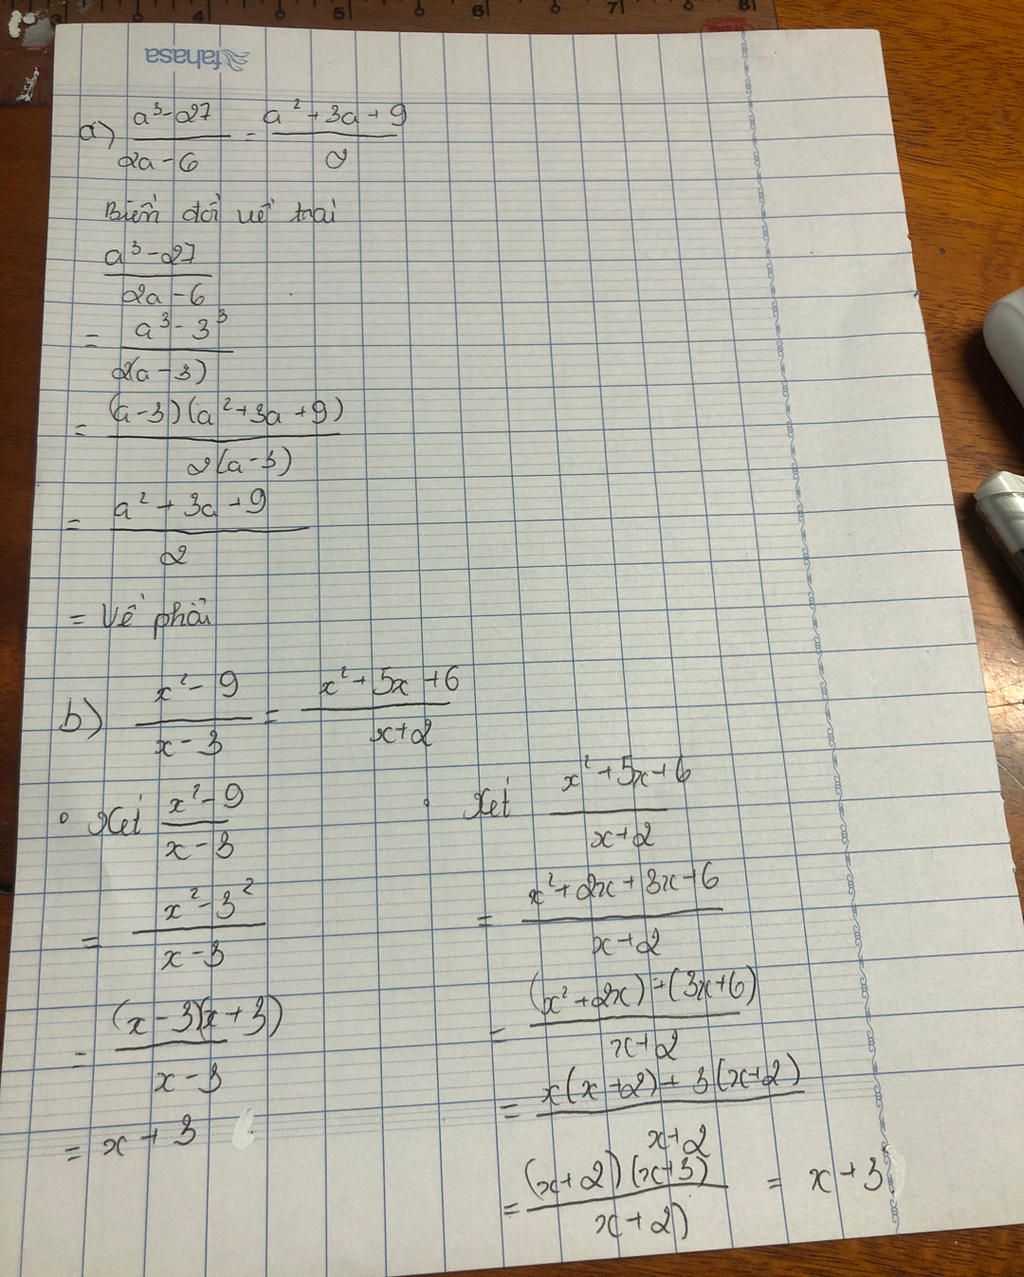 3 4 5 6 7 8
fahasa
a) a³-27 / 2a-6 = a²+3a+9 / 2
Biến đổi vế trái
a³-27 / 2a-6
= a³-3³ / 2(a-3)
= (a-3)(a²+3a+9) / 2(a-3)
= a²+3a+9 / 2
= Vế phải
b) x²-9 / x-3 = x²+5x+6 / x+2
• Xét x²-9 / x-3
= x²-3² / x-3
= (x-3)(x+3) / x-3
= x+3
• Xét x²+5x+6 / x+2
= x²+2x+3x+6 / x+2
= (x²+2x)+(3x+6) / x+2
= x(x+2)+3(x+2) / x+2
= (x+2)(x+3) / x+2) = x+3